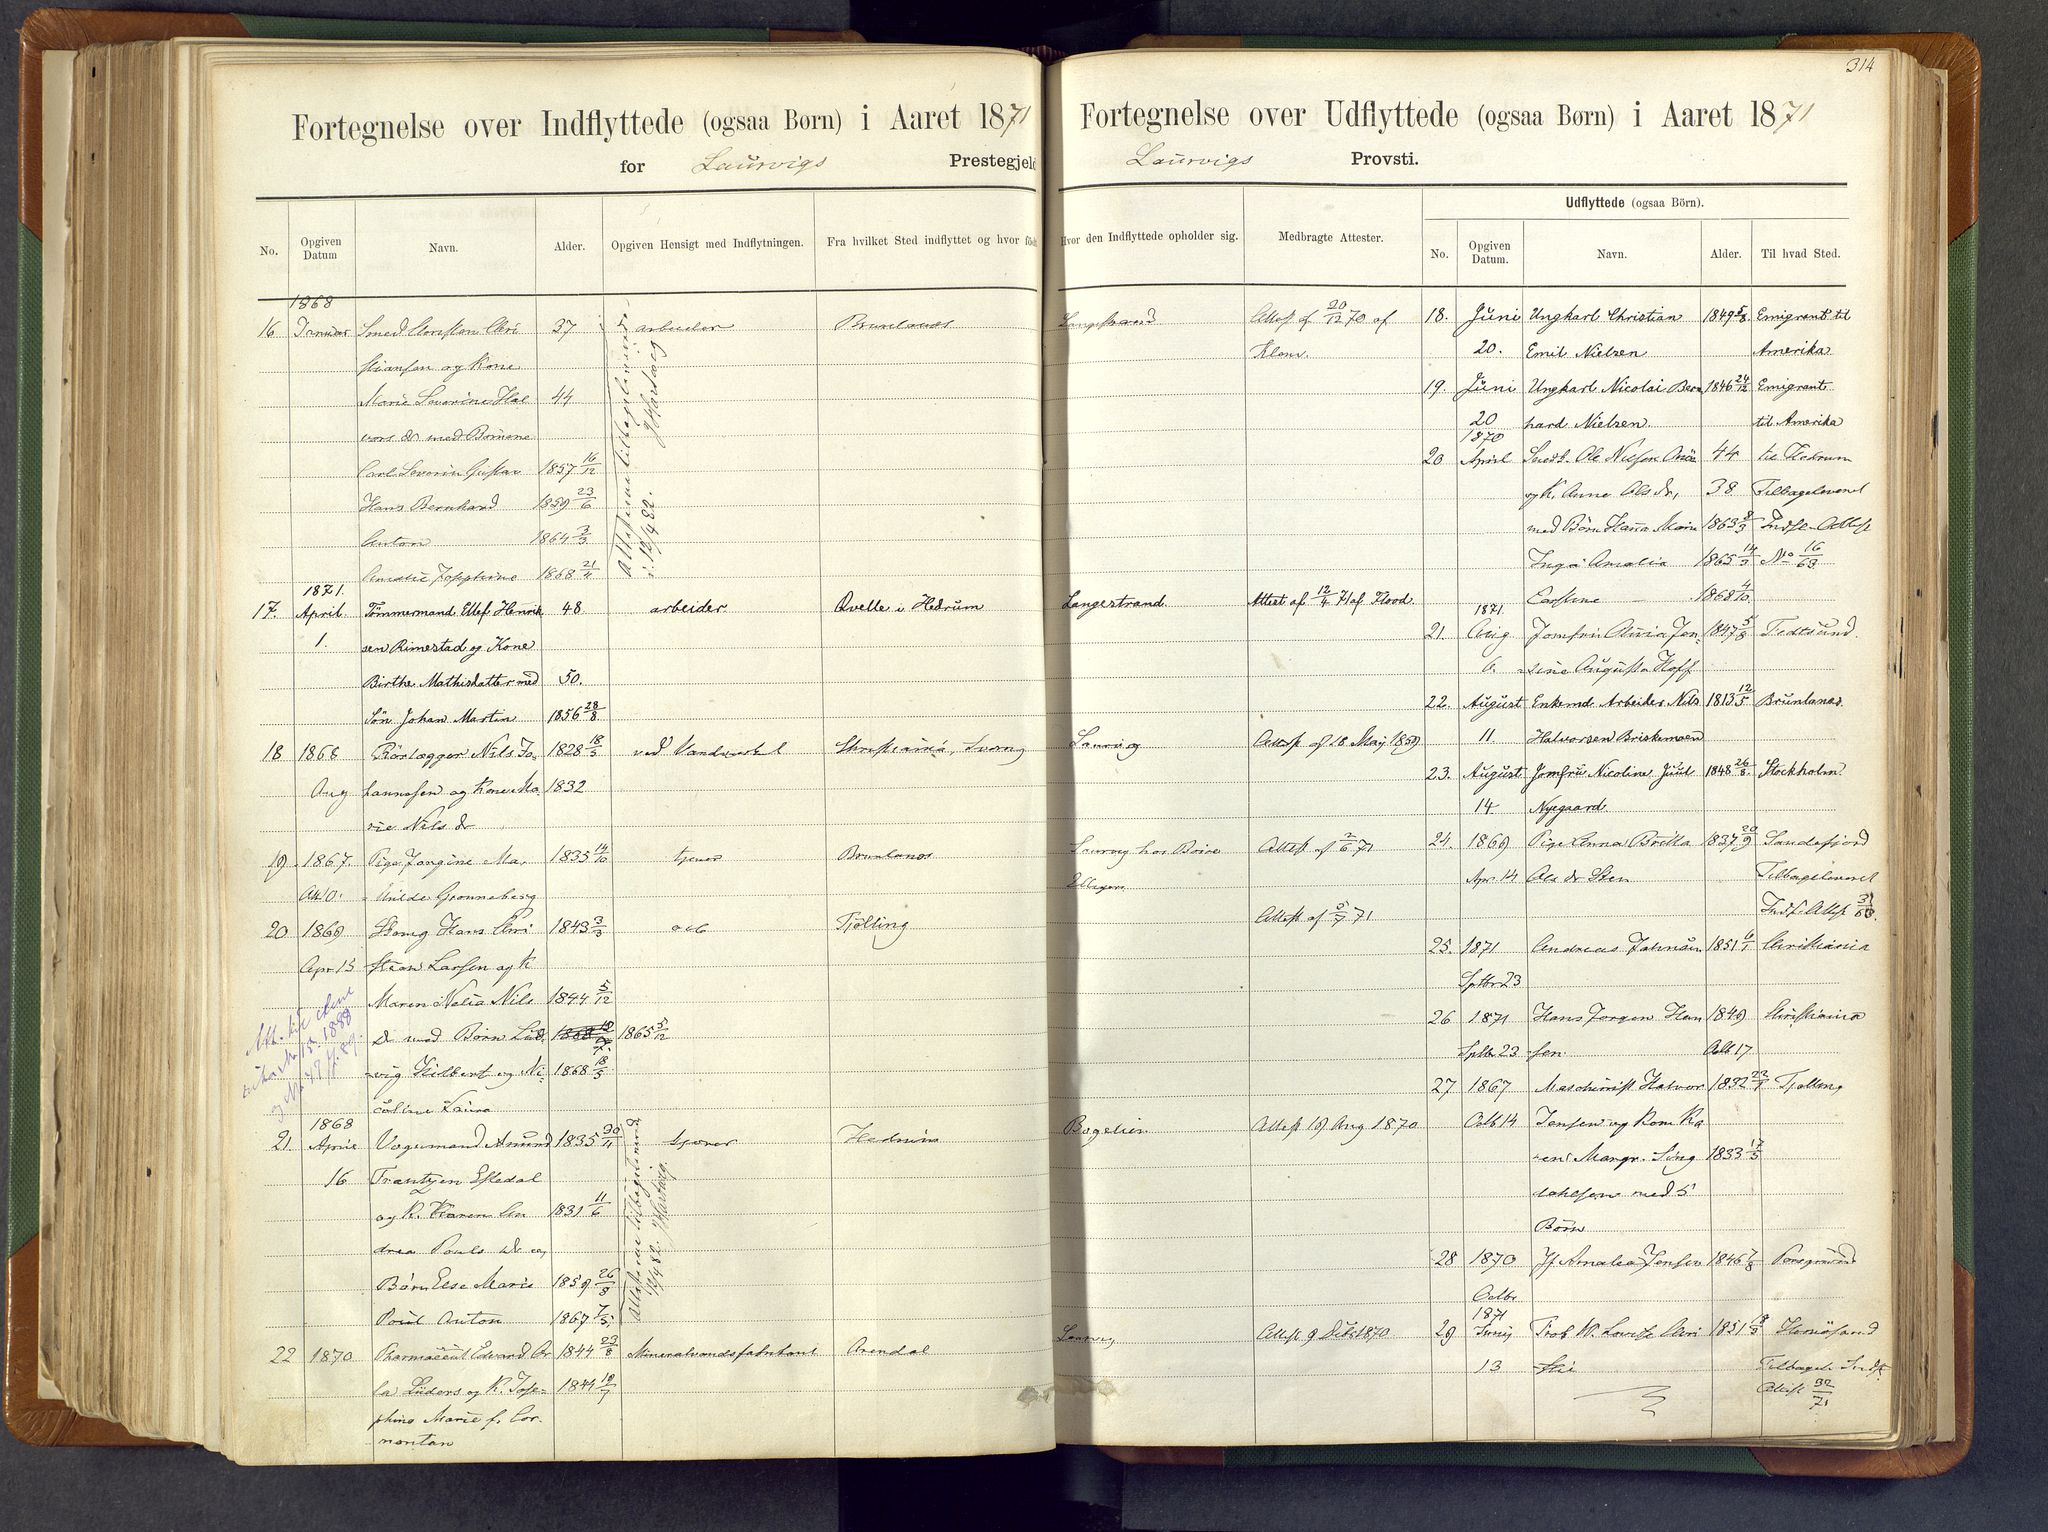 314
Fortegnelse over Indflyttede (ogsaa Børn) i Aaret 1871
for Laurvigs Prestegjeld
No.
Opgiven Datum
Navn.
Alder.
Opgiven Hensigt med Indflytningen.
Fra hvilket Sted indflyttet og hvor født
1868
16 Januar Smed Christen Chri 37 arbeider Brunlanæs
stiansen og Kone
Marie Severine Hal 44
vors dr med Børnene
Carl Severin Gustav 1857 16/12
Hans Bernhard 1859 23/6
Anton 1864 3/3
Amalie Josephine 1868 21/4
Attesterne tilbageleverede
i 12/4 82. Hartvig
1871.
17. April Tømmermand Ellef Henrik 48. arbeider Qvelle i Hedrum
1. sen Rimestad og Kone
Birthe Mathisdatter med 50.
Søn Johan Martin 1856 28/8
18 1868 Rørlægger Nils Jo- 1828 18/3 ved Vandverket Christiania, Sverig
Aug hannesen og Kone Ma 1832
rie Nils dr
19 1867 Pige Jongine Ma, 1835 14/10 tjener Brunlanæs
thilde Grønneberg
20 1869 Hans Chri 1843 3/3 Tjølling
Apr 15 stian Larsen og K
Maren Nelia Nils 1844 5/12
dr med Børn Lud, 1865 5/12
vig Hilbert og Ni- 1868 18/5
coline Laura
1868
21. April Vognmand Amund 1835 30/11 tjener Hedrum
16. Frantzen Eftedal
og K. Karen An 1831 11/6
drea Pouls dr og
Børn Else Marie 1859 26/8
Poul Anton 1867 7/5
Attesterne tilbageleverede
12/4 82. Hartvig.
22 1870 Pharmaceut Edvard Ar 1844 23/8 Mineralvandsfabrikant Arendal
Lüders og K. Jose- 1844 19/7
phine Marie f. Cor-
montan
Fortegnelse over Udflyttede (ogsaa Børn) i Aaret 1871
Laurvigs Provsti.
Hvor den Indflyttede opholder sig.
Medbragte Attester.
Udflyttede (ogsaa Børn).
No.
Opgiven Datum.
Navn.
Alder.
Til hvad Sted.
Langestrand Attest af 20/12 70 af
Klem.
Langestrand. Attest af 12/4 71 af Flood.
Laurvig Attest af 18 Maj 1859
Laurvig hos Attest af 2/6 71
Attest af 5/7 71
Bøgelien Attest 19 Aug 1870
Laurvig Attest 9 1870
18. Juni Ungkarl Christian 1849 5/8 Emigrant til
20. Emil Nielsen Amerika
19. Juni Ungkarl Nicolai Bern 1846 24/12 Emigrant
20 hard Nielsen til Amerika
1870
20 April Ole Nilsen 44 til Hedrum
og K. Anne Ols dr, 38. Tilbageleveret
med Børn Hanna Marn 1863 8/3 Indfl. Attest
Inga Amalia 1865 14/3 No 16/63
1868 4/10
1871
21. Aug Jomfru Anna Jen- 1847 5/8
6. sine Augusta Hoff
22. August Enkemd Arbeider Nils 1813 12/5 Brunlanæs
11. Halvorsen Briskemoen
23. August Jomfru Nicoline Juul 1848 26/8 Stockholm
14 Nyegaard
24. 1869 Pige Anna Britta 1837 20/9 Sandefjord
Apr. 14 Ols dr Sten Tilbageleveret
Indf. Attest
25. 1871 Andreas Johnsen 1851 6/1 Christiania
Sptbr 23
26 1871 Hans Jørgen Han 1849 Christiania
Sptbr 23 sen Octb 17
27 1867 Maschinist Halvor 1832 Tjølling
Octb 14 Jensen og Kone Ka
ren Margr. Sing 1833 17/5
dahlsen med 5
Børn
28 1870 Jf Amalia Jensen 1846 7/8 Porsgrund
Octbr
1871
29 Juni Louise Chri 1851 8/5 Hernösand
13 stie Tilbagel. Indfl.
Attest 32/71